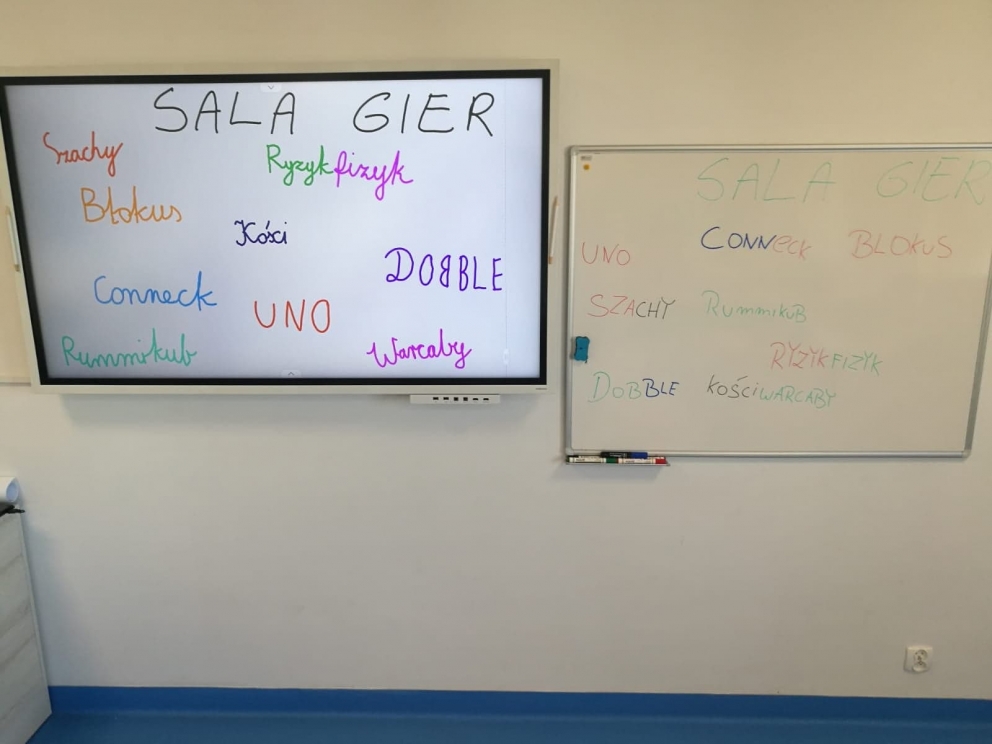 SALA GIER
Szachy
Ryzykfizyk
Blokus
Kości
DOBBLE
Conneck
UNO
Rummikub
Warcaby
SALA GIER
UNO
CONNECK
BLOKUS
SZACHY
RUMMIKUB
RYZYKFIZYK
DOBBLE
KOŚCI WARCABY